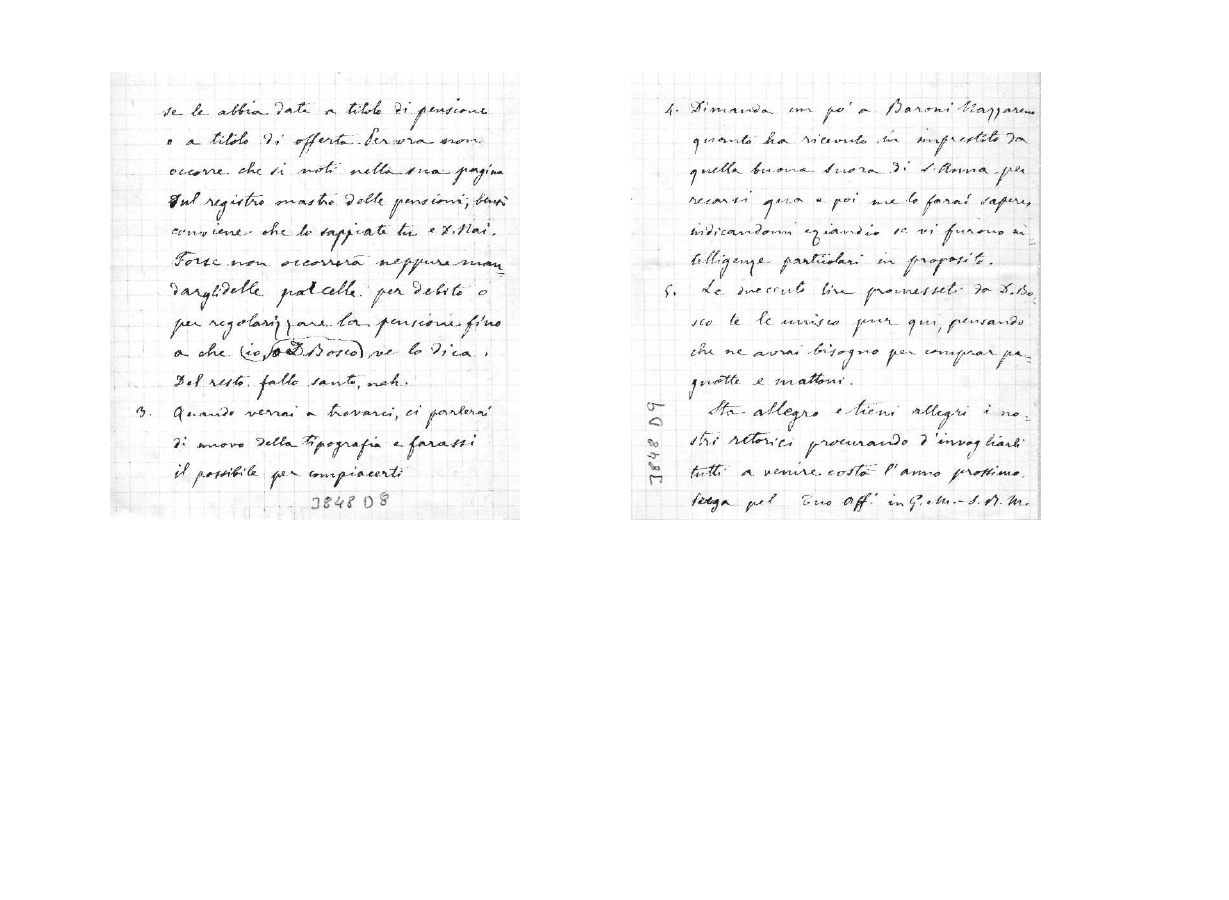 se le abbia date a titolo di pensione
o a titolo di offerta. Per ora non
occorre che si noti nella sua pagina
sul registro mastro delle pensioni; bensì
conviene che lo sappiate tu e D. Nai.
Forse non occorrerà neppure man=
dargli delle parcelle per debito o
per regolarizzare la pensione fino
a che (io, o D. Bosco) ve lo dica.
Del resto, fallo santo, neh.
3. Quando verrai a trovarci, ci parlerai
di nuovo della tipografia e farassi
il possibile per compiacerti
3848 D8
4. Dimanda un po' a Baroni Nazzareno
quanto ha ricevuto in imprestito da
quella buona Suora di S. Anna per
recarsi qua e poi me lo farai sapere,
indicandomi eziandio se vi furono in=
telligenze particolari in proposito.
5. Le duecento lire promesseti da D. Bo=
sco te le unisco pur qui, pensando
che ne avrai bisogno per comprar pa=
gnotte e mattoni.
Sta allegro e tieni allegri i no=
stri retorici procurando d'invogliarli
tutti a venire costà l'anno prossimo.
pel Tuo Aff. in G. e M. - S. D. M.
3848 D9